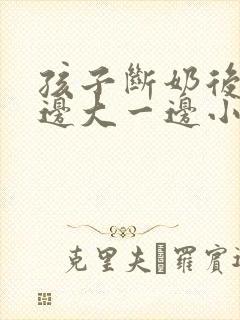 孩子斷奶後
邊大一邊小
克里夫 羅賓